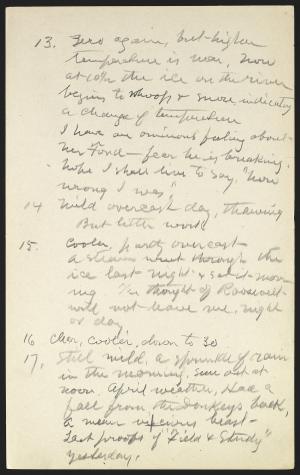 13. Zero again, but higher
temperature is near, now
at 10 the ice on the river
begins to whoop & snore, indicating
a change of temperature
I have an ominous feeling about
Mr Ford – fear he is breaking.
Hope I shall live to say, "How
wrong I was"
14 Mild overcast day, thawing
But little work
15. Cooler, part overcast
a steamer went through the
ice last night & set it mov-
ing. The thought of Roosevelt
will not leave me, night
or day
16 Clear, cooler, down to 30
17, Still mild, a sprinkle of rain
in the morning, sun out at
noon. April weather, Had a
fall from the donkeys back,
a mean vicious beast –
Last proofs of "Field & Study"
yesterday.